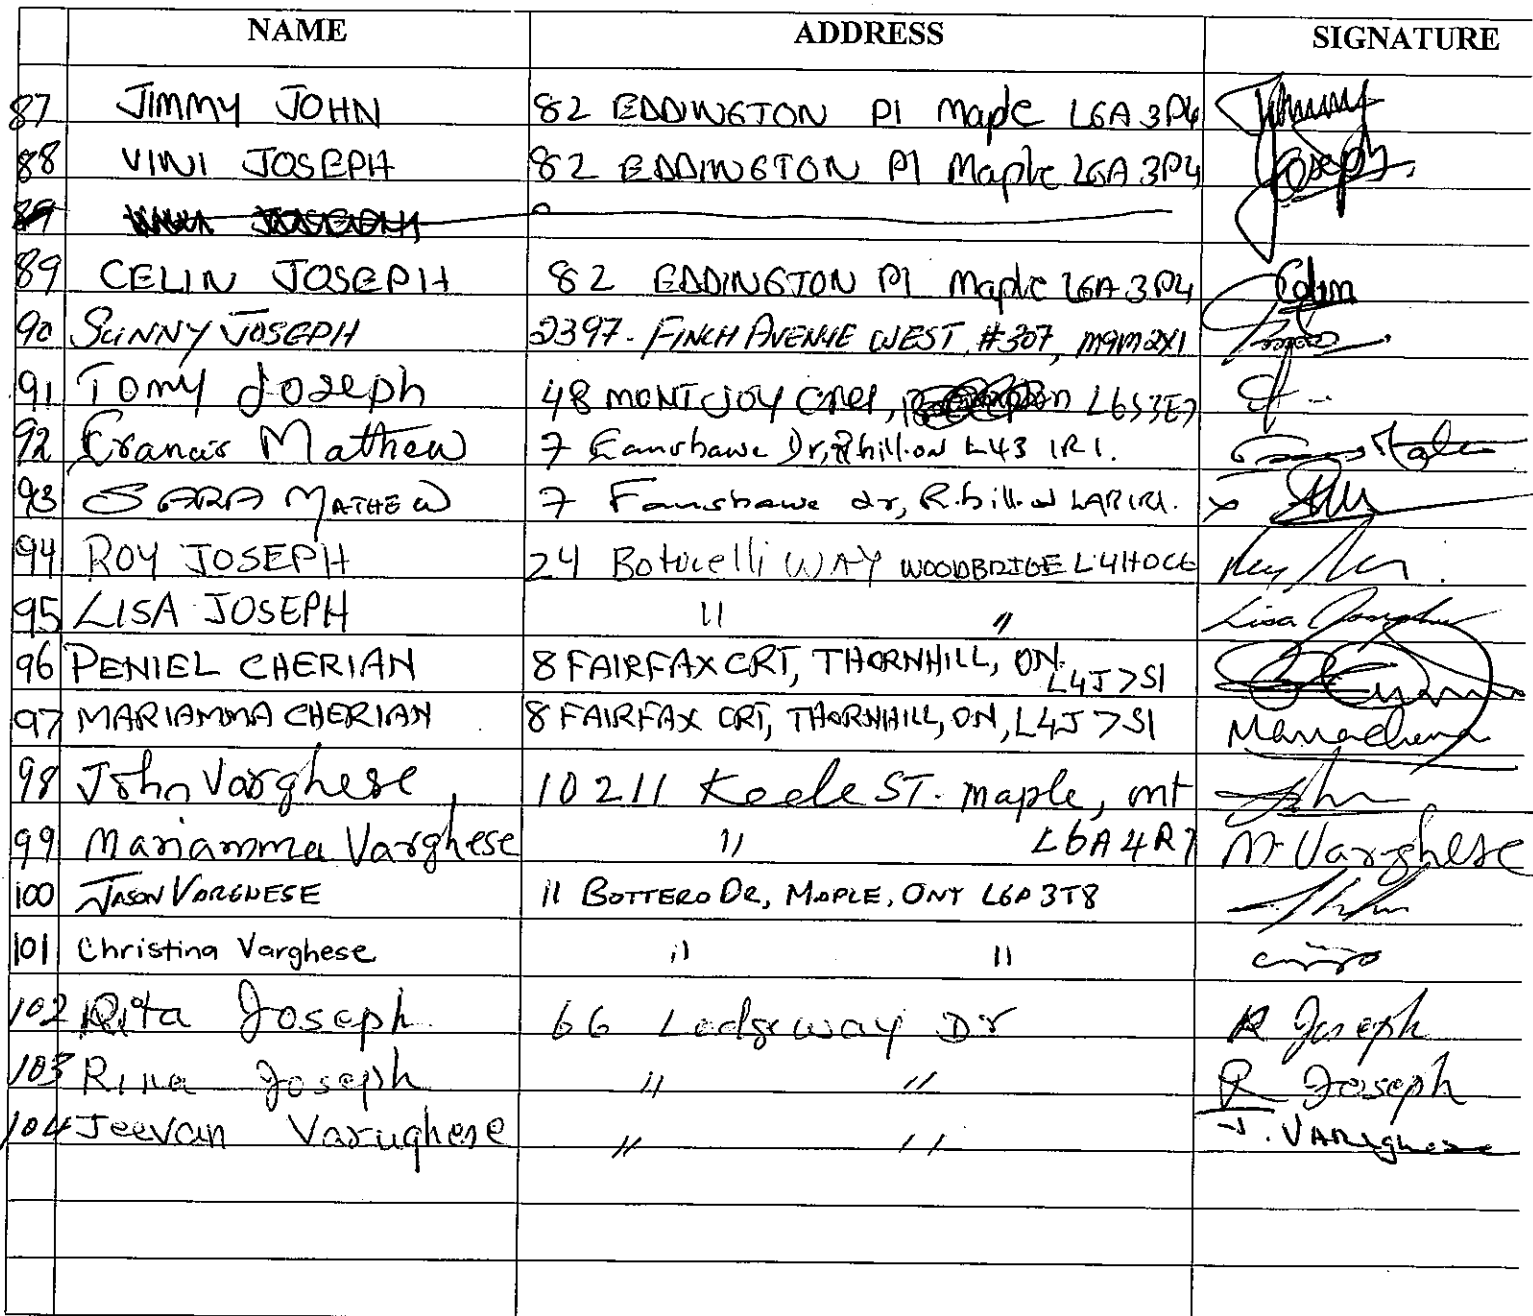 NAME ADDRESS SIGNATURE
87 JIMMY JOHN 82 EDDINGTON Pl Maple L6A 3P4
88 VINI JOSEPH 82 EDDINGTON Pl Maple L6A 3P4 Joseph
89
89 CELIN JOSEPH 82 EDDINGTON Pl Maple L6A 3P4 Celin
90 SUNNY JOSEPH 2397. FINCH AVENUE WEST, #307, M9M2X1
91 Tomy Joseph 48 MONTJOY Cres, L6S3E7
92 Francis Mathew 7 Fanshawe Dr, Rhill.on L43 1R1.
93 SARA MATHEW 7 Fanshawe dr, R.hill. x
94 ROY JOSEPH 24 Botticelli WAY WOODBRIDGE L4H0C6
95 LISA JOSEPH " " Lisa Joseph
96 PENIEL CHERIAN 8 FAIRFAX CRT, THORNHILL, ON. L4J 7S1
97 MARIAMMA CHERIAN 8 FAIRFAX CRT, THORNHILL, ON, L4J 7S1
98 John Varghese, 10211 Keele ST. maple, ont John
99 Mariamma Varghese " L6A 4R7 M Varghese
100 JASON VARGHESE 11 BOTTERO DR, MAPLE, ONT L6A 3T8
101 Christina Varghese " "
102 Rita Joseph 66 Ledgeway Dr R Joseph
103 Rina Joseph " " R Joseph
104 Jeevan Varughese " " J. VARughese